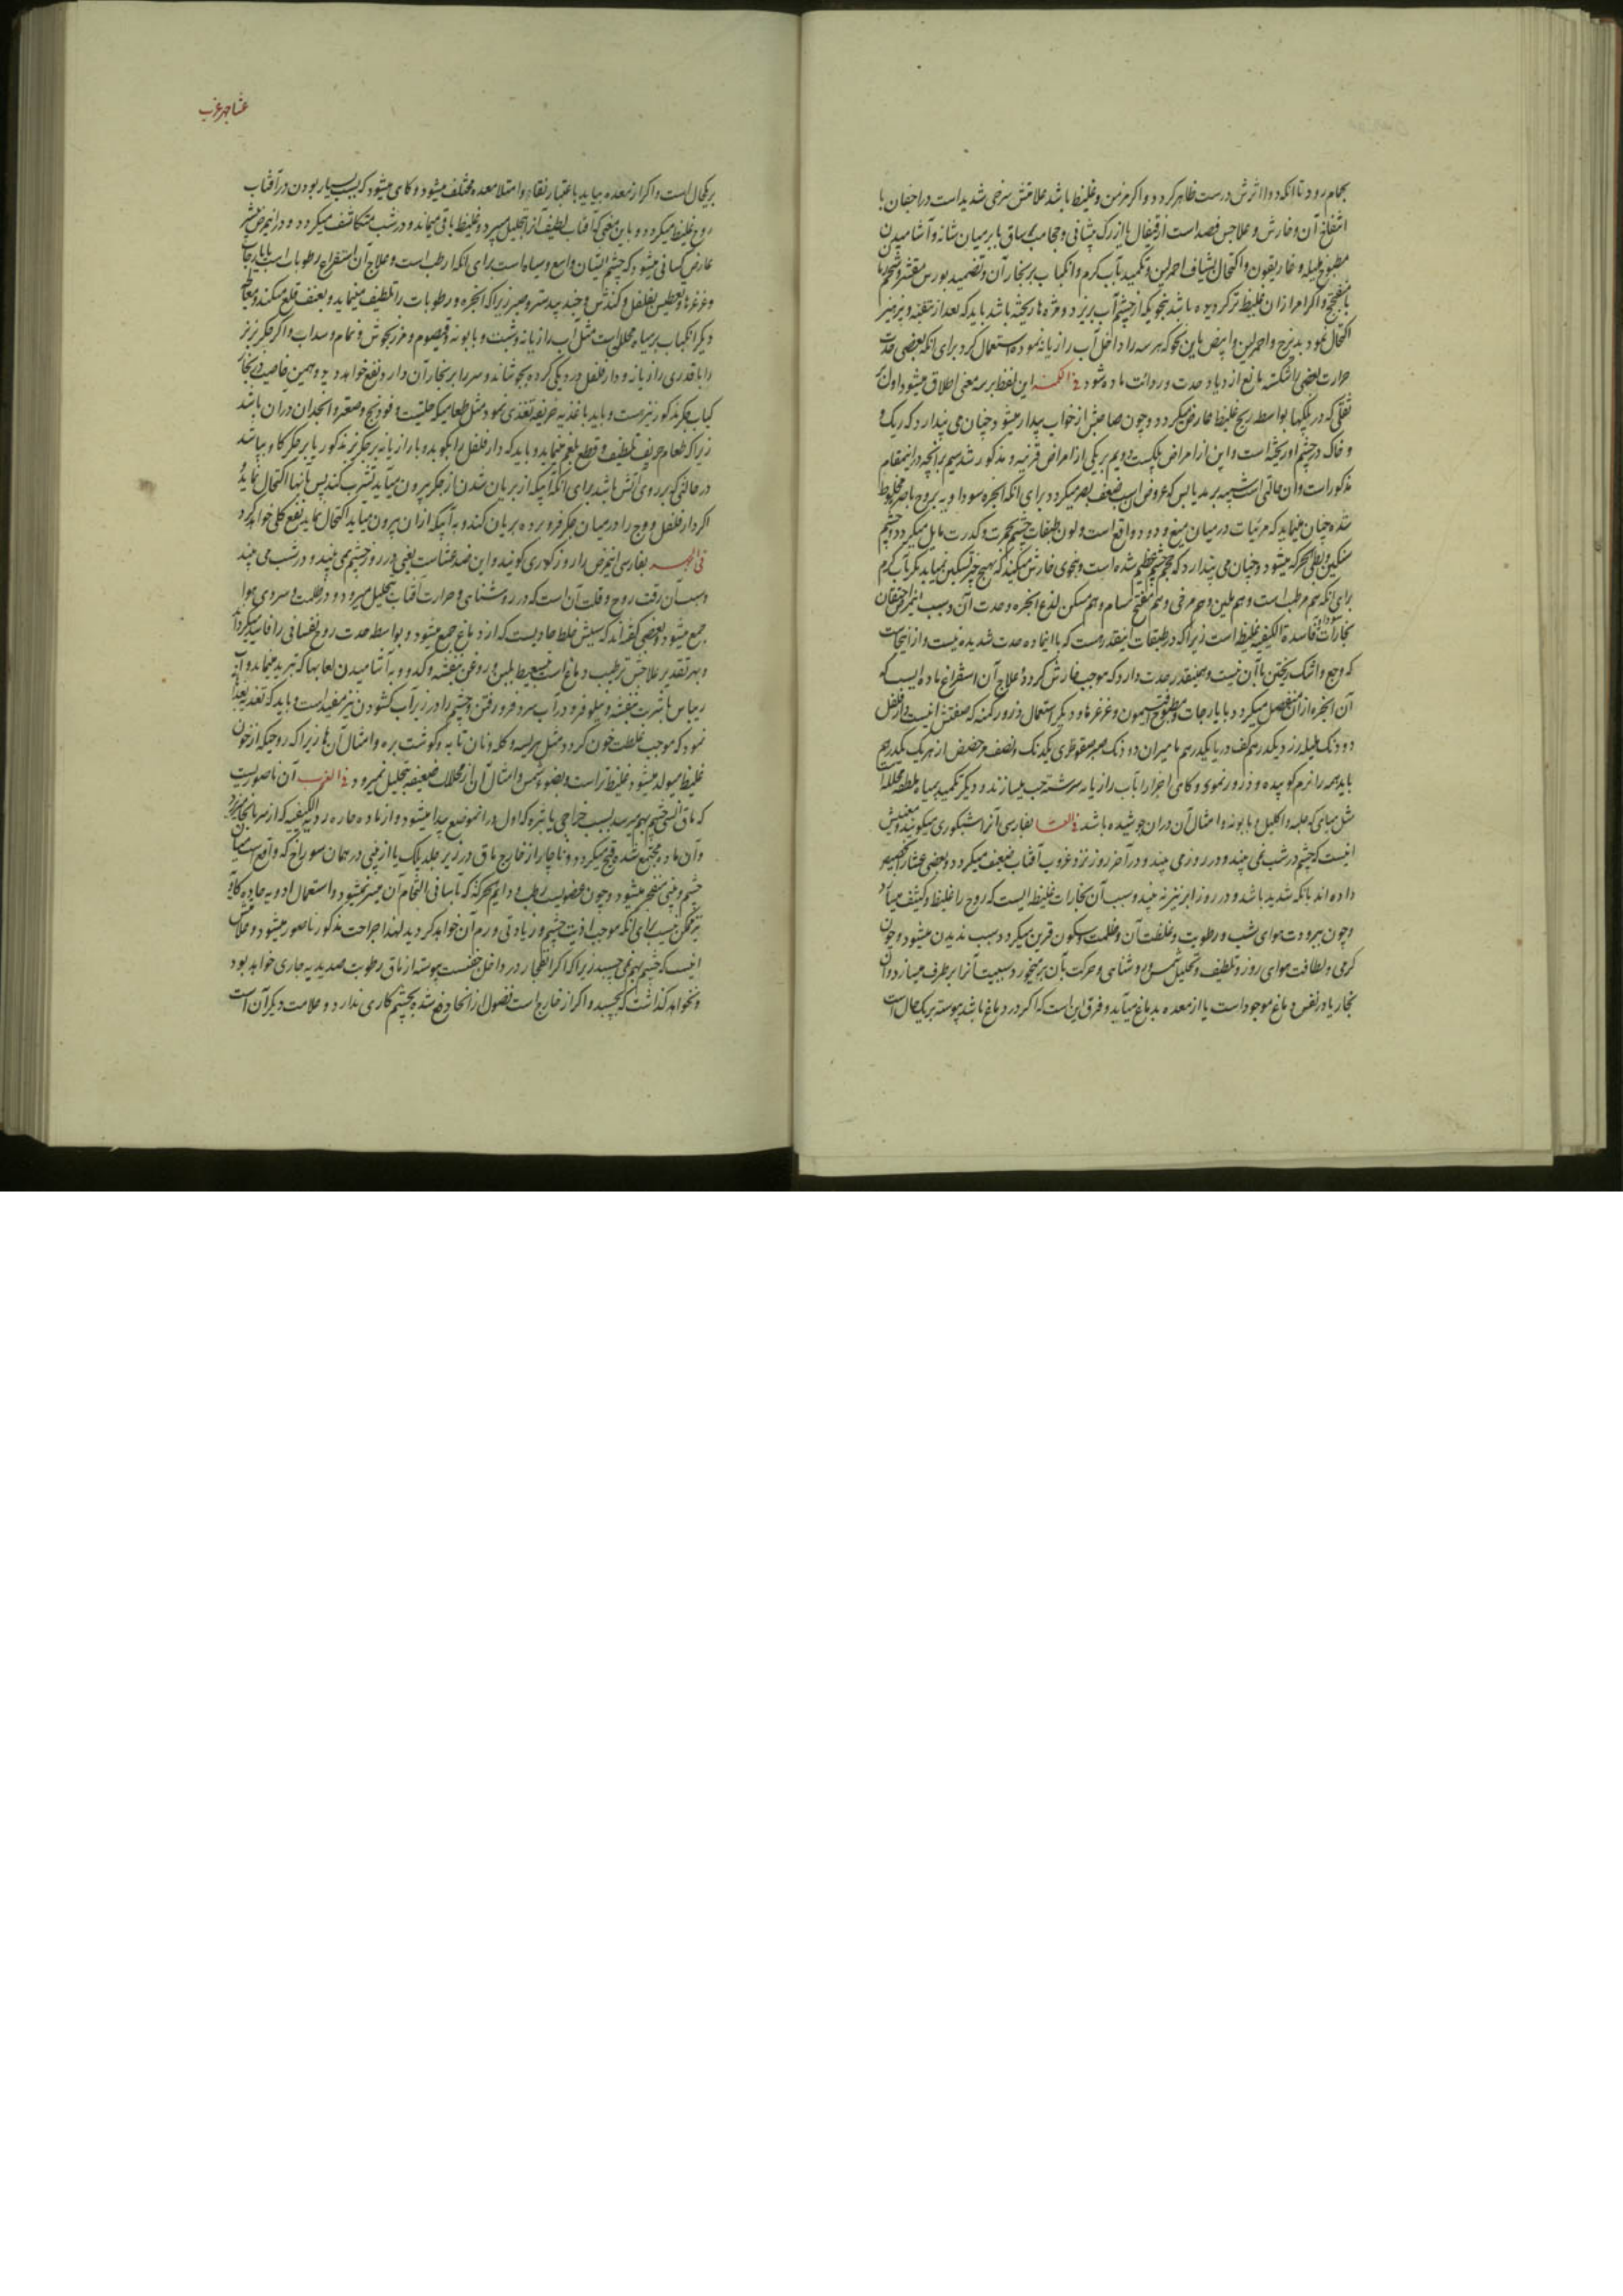 بحمام رود تا آنکه دوا اثرش درست ظاهر کردد و اکر مزمن و غلیظ باشد علامتش سرخی شدید است در اجفان با
انتفاخ آن و خارش و علاجش فصد است از قیفال یا از رک پیشانی و حجامت ساق یا بر میان شانه و آشامیدن
مطبوخ هلیله و غاریقون و اکتحال باشیاف احمر لین و تکمید بآب کرم و انکباب بر بخار آن و تضمید بورس مقشر و شحم
با میفختج و اکر امر از ان غلیظ تر کردیده باشد بنحویکه از چشم آب بریزد و مژه ها ریخته باشد باید که بعد از تنقیه و پرهیز
اکتحال نمود بدیزج و احمر لین و ابیض باین نحو که هر سه را داخل آب رازیانه نموده استعمال کرد برای آنکه بعضی حدت
حرارت بعضی را شکسته مانع ازدیاد حدت و ردائت ماده شود فی الکمنه این لفظ بر سه معنی اطلاق میشود اول
ثقلی که در پلکها بواسطه ریح غلیظ عارض میکردد و چون صاحبش از خواب بیدار میشود چنان می پندارد که ریک و
و خاک در چشم او ریخته است و این از امراض پلکست دویم بر یکی از امراض قرنیه و مذکور شد سیم بر آنچه در اینمقام
مذکور است و ان حالتی است شبیه برمد یابس که عروض سبب ضعف بصر میکردد برای آنکه ابخره سوداویه بروح باصره مخلوط
شده چنان مینماید که مرئیات در میان میغ و دود واقع است و لون طبقات چشم بحمرت و کدرت مایل میکردد و چشم
سنکین و بطی الحرکه میشود و چنان می پندارد که حجم چشم عظیم شده است و بنحوی خارش میکند که بهیچ چیز تسکین نمییابد مکر بآب کرم
برای آنکه هم مرطب است و هم ملین و هم مرخی و هم مفتح مسام و هم مسکن لذع ابخره و حدت آن و سبب اینمرض احتقان
بخارات فاسدة الکیفیه غلیظ است زیرا که در طبقات اینقدر هست که با اینماده حدت شدیده نیست و از اینجاست
که وجع و اشک ریختن با آن نیست و همینقدر حدت دارد که موجب خارش کردد و علاج آن استفراغ ماده ایست که
آن ابخره از ان منفصل میکردد بایارجات و مطبوخ افتیمون و غرغره ها و دیکر استعمال ذرور کمنه که صفتش اینست دارفلفل
دو دنک هلیله زرد یکدرهم کف دریا یکدرهم مامیران دو دنک صبر سقوطری یکدنک و نصف حضض از هر یک یکدرهم
باید همه را نرم کوبیده و ذرور نمود و کاهی اجزا را بآب رازیانه سرشته حب میسازند و دیکر تکمید بمیاه ملطفه محلله
مثل میاهی که حلبه و اکلیل و بابونه و امثال آن دران جوشیده باشد فی العشا بفارسی آنرا شبکوری میکویند و معنیش
اینست که چشم در شب نمی بیند و در روز می بیند و در آخر روز نزد غروب آفتاب ضعیف میکردد و بعضی عشا را تخصیص
داده اند بآنکه شدید باشد و در روز ابر نیز نه بیند و سبب آن بخارات غلیظه ایست که روح را غلیظ و کثیف میسازد
و چون ببرودت هوای شب و رطوبت و غلظت آن و ظلمت و سکون قرین میکردد سبب ندیدن میشود و چون
کرمی و لطافت هوای روز و تلطیف و تحلیل شمس و روشنائی و حرکت بآن بر میخورد سببیت آنرا برطرف میسازد و ان
بخار یا در نفس دماغ موجود است یا از معده بدماغ میآید و فرق این است که اکر در دماغ باشد پیوسته بر یک حال است
عشا جهر غرب
بر یکحال است و اکر از معده بیاید باعتبار نقاء و امتلاء معده مختلف میشود و کاهی میشود که بسبب بسیار بودن در آفتاب
روح غلیظ میکردد و باین معنی که آفتاب لطیف آنرا بتحلیل میبرد و غلیظ باقی میماند و در شب متکاثف میکردد و اینمرض بیشتر
عارض کسانی میشود که چشم ایشان واسع و سیاه است برای آنکه ارطب است و علاج آن استفراغ رطوبات است بایارجات
و غرغره ها و تعطیس بفلفل و کندش و جندبیدستر و صبر زیرا که ابخره و رطوبات را تلطیف مینماید و بعنف قلع میکند و معالجه
دیکر انکباب بر میاه محلله است مثل آب رازیانه و شبت و بابونه و قیصوم و مرزنجوش و نمام و سداب و اکر جکر بز نر
را با قدری رازیانه و دارفلفل در دیکی کرده بجوشاند و سر را بر بخار آن دارد نفع خواهد دید و همین خاصیت بخار
کباب جکر مذکور نیز هست و باید باغذیه حریفه تغذی نمود مثل طعامیکه حلتیت و فودنج و صعتر و انجدان دران باشد
زیرا که طعام حریف تلطیف و قطع بلغم مینماید و باید که دارفلفل را بکوبد و با رازیانه بر جکر بز مذکور یا بر جکر کاو بپاشد
در حالتی که بر روی آتش باشد برای آنکه آبیکه از بریان شدن از جکر بیرون میآید تشرب کند پس بآنها اکتحال نماید
اکر دارفلفل و وج را در میان جکر فرو برده بریان کند و به آبیکه ازان بیرون میآید اکتحال نماید نفع کلی خواهد کرد
فی الجهر بفارسی اینمرض را روز کوری کویند و این ضد عشاست یعنی در روز چشم نمی بیند و در شب می بیند
و سبب آن رقت روح و قلت آن است که در روشنائی و حرارت آفتاب بتحلیل میرود و در ظلمت و سردی هوا
جمع میشود و بعضی کفته اند که سببش خلط حادیست که از دماغ جمع میشود و بواسطه حدت روح نفسانی را فاسد میکرداند
و بهر تقدیر علاجش ترطیب دماغ است بتسعیط بلبن و روغن بنفشه و کدو و به آشامیدن لعابها که تبرید مینماید و آب
ریباس با شربت بنفشه و نیلوفر و در آب سرد فرو رفتن و چشم را در زیر آب کشودن نیز مفید است و باید که تغذیه بغذائی
نمود که موجب غلظت خون کردد مثل هریسه و کله و نان تابه و کوشت بره و امثال آن ها زیرا که روحیکه از خون
غلیظ میولد میشود غلیظ تر است و بضوء شمس و امثال آن از محللات ضعیفه بتحلیل نمیرود فی الغرب آن ناصوریست
که در ماق انسی چشم بهم میرسد بسبب خراجی یا بثره که اول در انموضع پیدا میشود و از ماده حاره ردیة الکیفیه که از سر بآنجا میریزد
و آن ماده مجتمع شده قیح میکردد و ناچار از خارج ماق در زیر جلد پلک یا از بینی در همان سوراخ که واقع است میان
چشم و بینی منفجر میشود و چون عضویست رطب و دایم الحرکة که بآسانی التحام آن میسر نمیشود و استعمال ادویه حاده کاویه
نیز ممکن نیست برای آنکه موجب اذیت چشم و زیادتی ورم آن خواهد کردید لهذا جراحت مذکور ناصور میشود و علامتش
اینست که چشم بهم می چسبد زیرا که اکر انفجار در داخل جفنست پیوسته از ماق رطوبت صدیدیه جاری خواهد بود
و نخواهد کذاشت که بچسبد و اکر از خارج است فضول از آنجا دفع شده بچشم کاری ندارد و علامت دیکر آن است